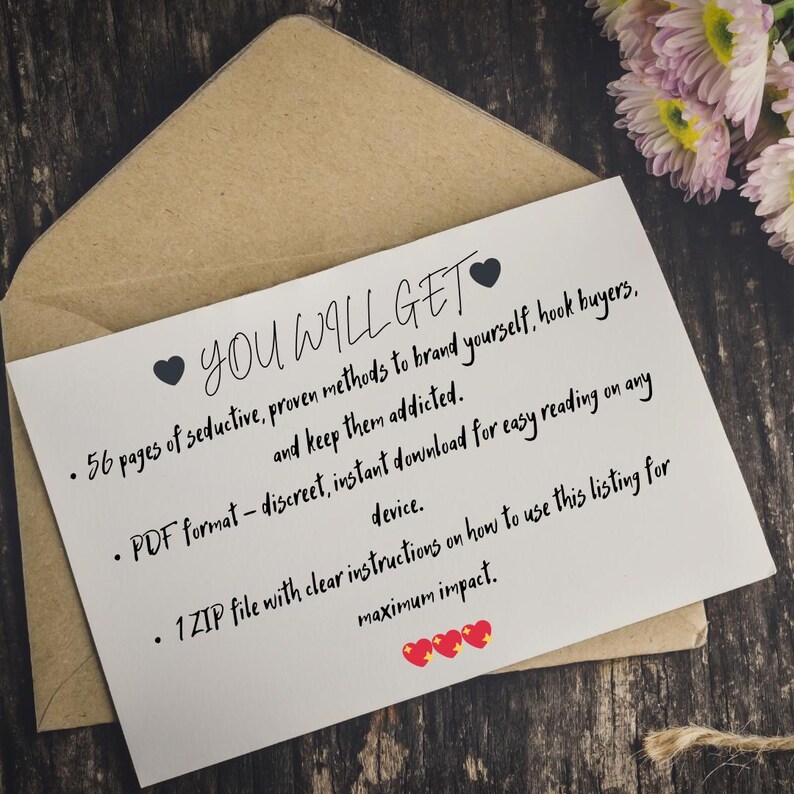 🖤 YOU WILL GET 🖤
• 56 pages of seductive, proven methods to brand yourself, hook buyers,
and keep them addicted.
• PDF format – discreet, instant download for easy reading on any
device.
• 1 ZIP file with clear instructions on how to use this listing for
maximum impact.
💖💖💖